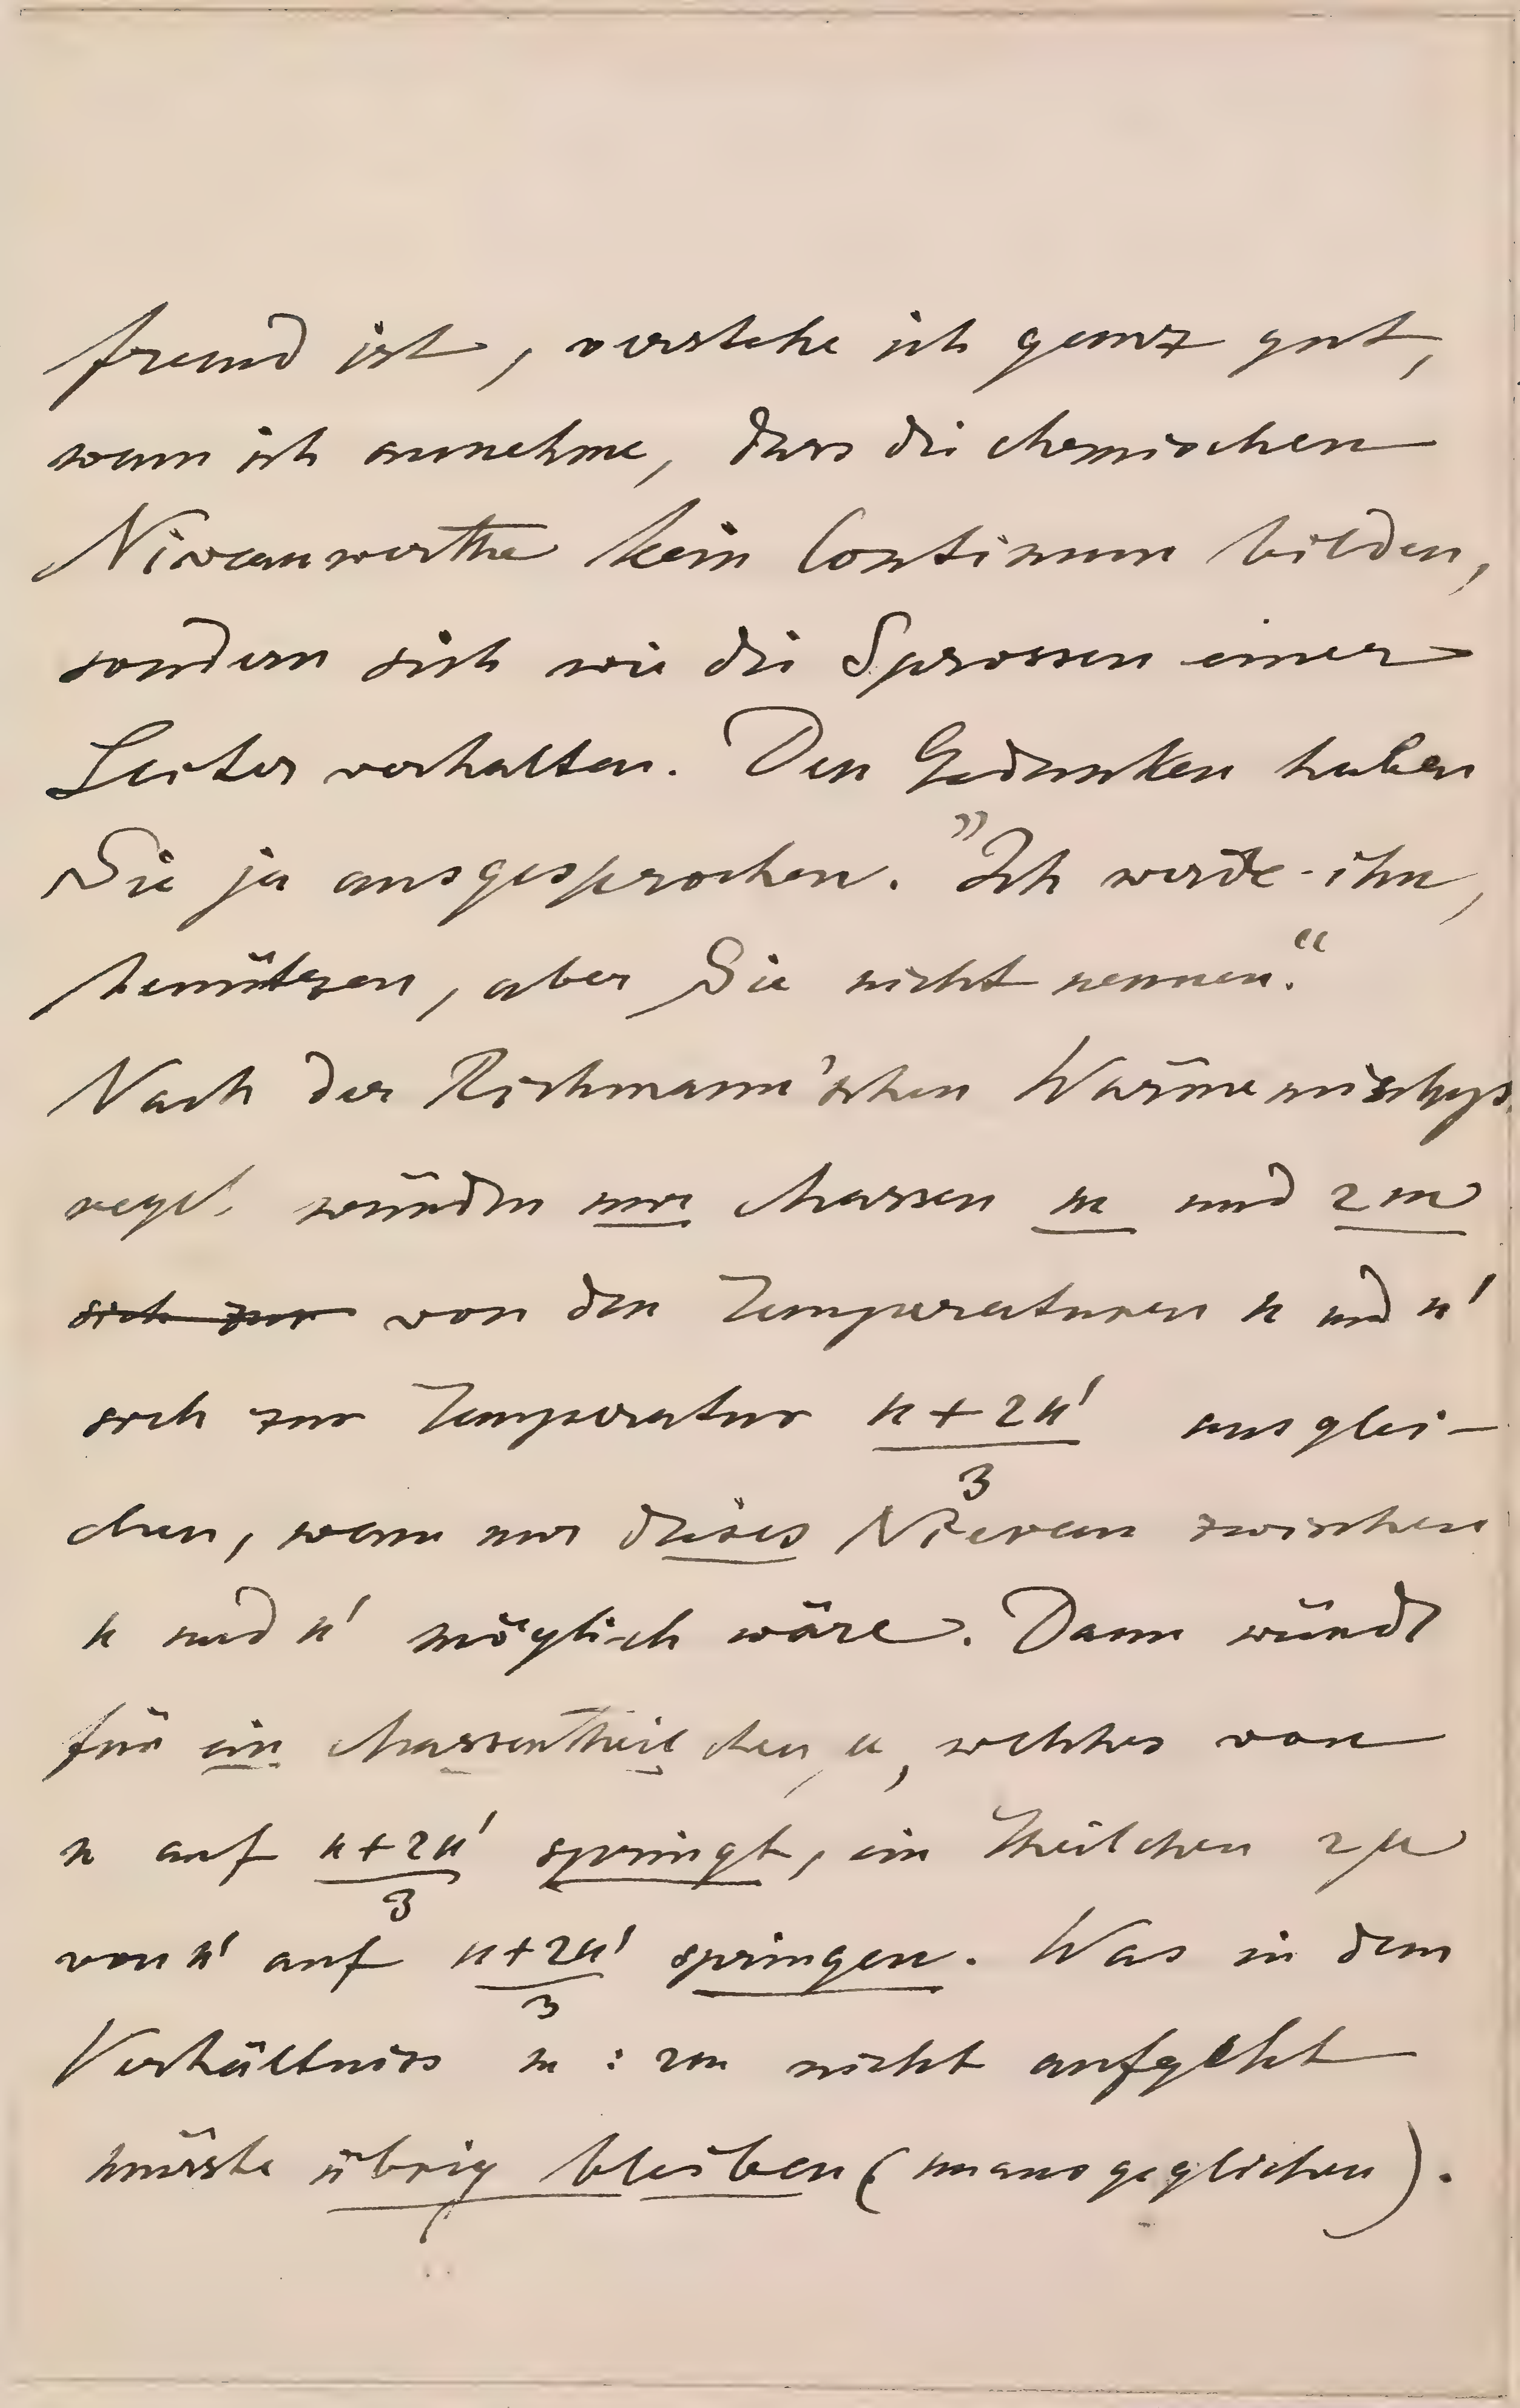 fremd ist, verstehe ich ganz gut,
wenn ich annehme, dass die chemischen
Niveauwerthe kein Continuum bilden,
sondern sich wie die Sprossen einer
Leiter verhalten. Den Gedanken haben
Sie ja ausgesprochen. "Ich werde ihn,
benützen, aber Sie nicht nennen."
Nach der Richmann'schen Wärmemischgs.
regel würden zwei Massen m und 2m
sich zur von den Temperaturen u und u'
sich zur Temperatur (u + 2u')/3 ausglei-
chen, wenn nur dieses Niveau zwischen
u und u' möglich wäre. Dann würde
für ein Massentheilchen μ, welches von
u auf (u+2u')/3 springt, ein Theilchen 2μ
von u' auf (u+2u')/3 springen. Was in dem
Verhältniss m : 2m nicht aufgeht
müsste übrig bleiben (unausgeglichen).